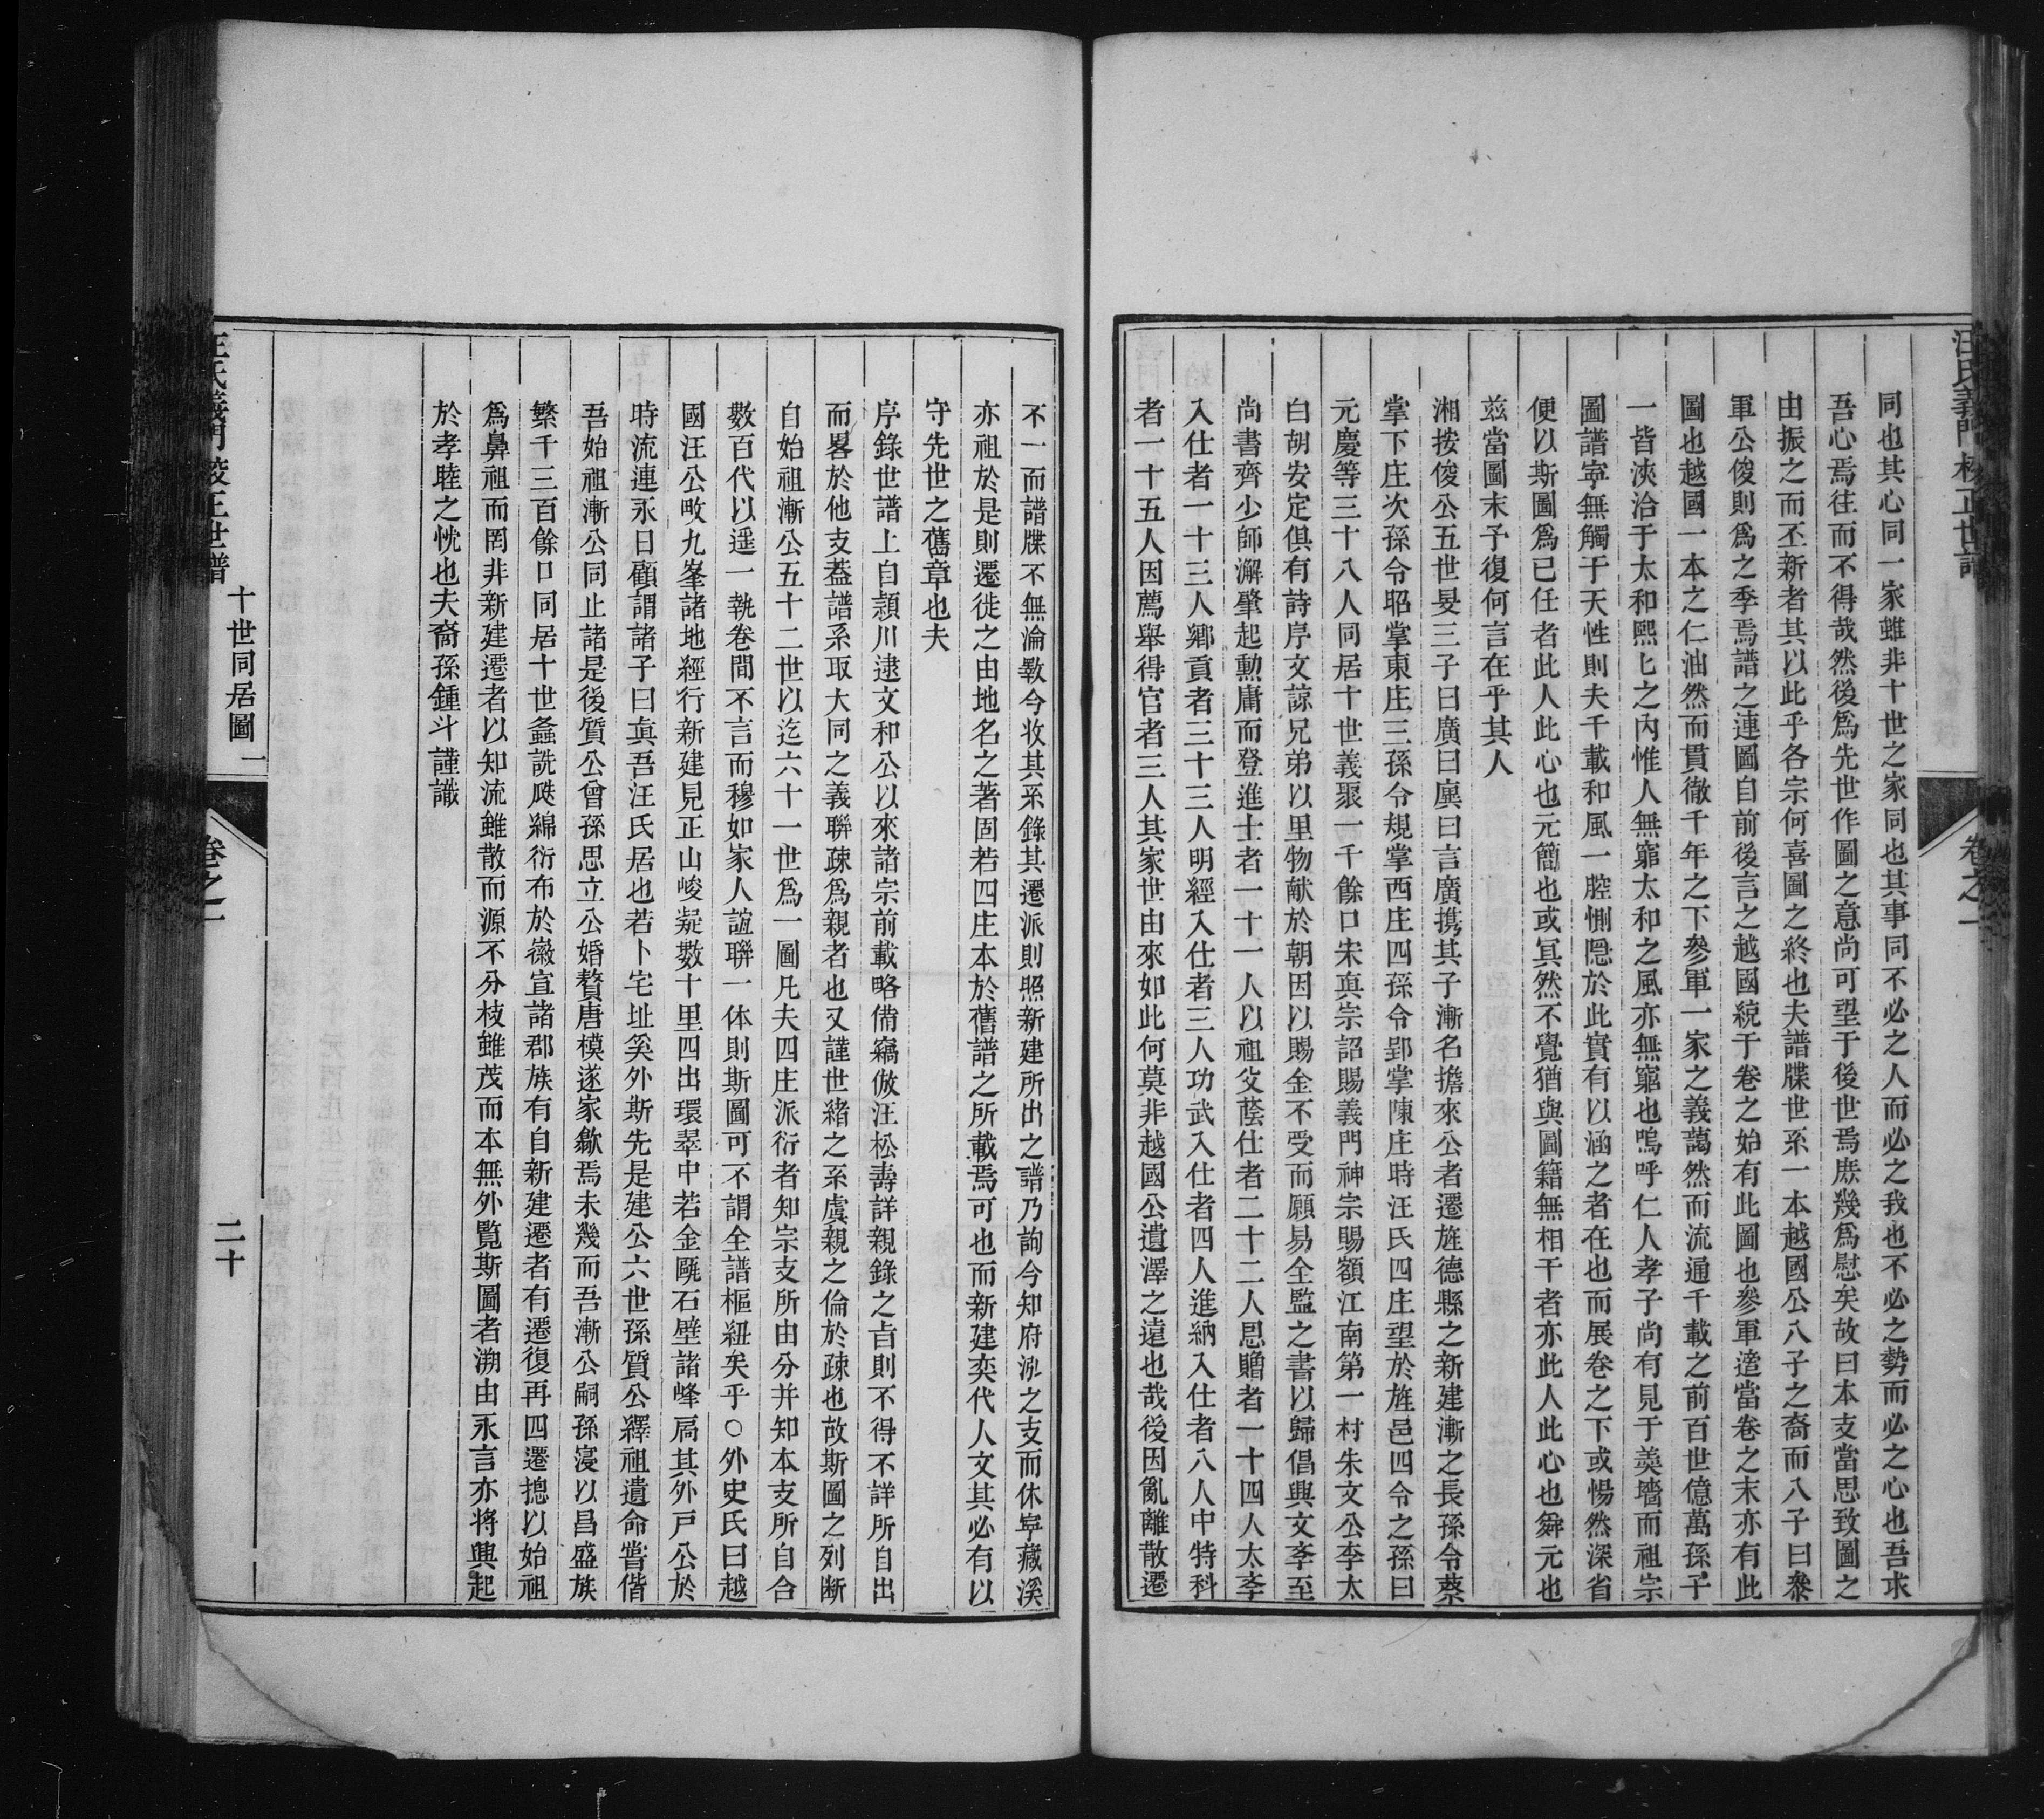 汪氏義門校正世譜
卷之一
同也其心同一家雖非十世之家同也其事同不必之人而必之我也不必之勢而必之心也吾求
吾心焉往而不得哉然後爲先世作圖之意尚可望于後世焉庶幾爲慰矣故曰本支當思致圖之
由振之而丕新者其以此乎各宗何喜圖之終也夫譜牒世系一本越國公八子之裔而八子曰叅
軍公俊則爲之季焉譜之連圖自前後言之越國統于卷之始有此圖也叅軍遳當卷之末亦有此
圖也越國一本之仁油然而貫徹千年之下叅軍一家之義藹然而流通千載之前百世億萬孫子
一皆浹洽于太和熙匕之內惟人無窮太和之風亦無窮也嗚呼仁人孝子尚有見于羮墻而祖宗
圖譜寧無觸于天性則夫千載和風一腔惻隠於此實有以涵之者在也而展卷之下或惕然深省
便以斯圖爲已任者此人此心也元簡也或冥然不覺猶與圖籍無相干者亦此人此心也舜元也
兹當圖末予復何言在乎其人
湘按俊公五世旻三子曰廣曰廙曰言廣携其子漸名擔來公者遷旌德縣之新建漸之長孫令蔡
掌下庄次孫令昭掌東庄三孫令規掌西庄四孫令郢掌陳庄時汪氏四庄望於旌邑四令之孫曰
元慶等三十八人同居十世義聚一千餘口宋眞宗詔賜義門神宗賜額江南第一村朱文公李太
白胡安定俱有詩序文諒兄弟以里物献於朝因以賜金不受而願易全監之書以歸倡興文斈至
尚書齊少師澥肇起勲庸而登進士者一十一人以祖父蔭仕者二十二人思贈者一十四人太斈
入仕者一十三人鄉貢者三十三人明經入仕者三人功武入仕者四人進納入仕者八人中特科
者一十五人因薦舉得官者三人其家世由來如此何莫非越國公遺澤之遠也哉後因亂離散遷
不一而譜牒不無淪斁今收其系錄其遷派則照新建所出之譜乃詢今知府泓之支而休寧藏溪
亦祖於是則遷徙之由地名之著固若四庄本於舊譜之所載焉可也而新建奕代人文其必有以
守先世之舊章也夫
序錄世譜上自頴川逮文和公以來諸宗前載略備竊倣汪松壽詳親錄之㫖則不得不詳所自出
而畧於他支葢譜系取大同之義聯疎爲親者也又謹世緒之系虞親之倫於疎也故斯圖之列断
自始祖漸公五十二世以迄六十一世爲一圖凡夫四庄派衍者知宗支所由分并知本支所自合
數百代以遥一執卷間不言而穆如家人誼聯一体則斯圖可不謂全譜樞紐矣乎○外史氏曰越
國汪公畋九峯諸地經行新建見正山峻凝數十里四出環翠中若金甌石壁諸峰扃其外戸公於
時流連永日顧謂諸子曰眞吾汪氏居也若卜宅址奚外斯先是建公六世孫質公繹祖遺命嘗偕
吾始祖漸公同止諸是後質公曾孫思立公婚贅唐模遂家歙焉未幾而吾漸公嗣孫寖以昌盛族
繁千三百餘口同居十世螽詵瓞綿衍布於徽宣諸郡族有自新建遷者有遷復再四遷摠以始祖
爲鼻祖而罔非新建遷者以知流雖散而源不分枝雖茂而本無外覽斯圖者溯由永言亦将興起
於孝睦之忱也夫裔孫鍾斗謹識
汪氏義門校正世譜
十世同居圖一
卷之一
二十